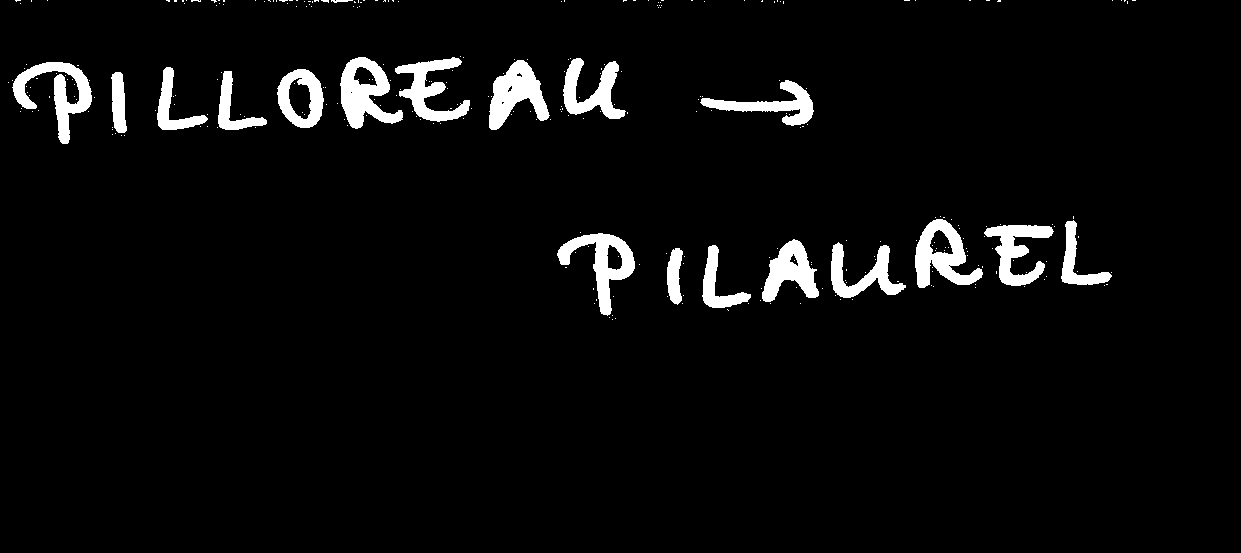 PILLOREAU →
PILAUREL